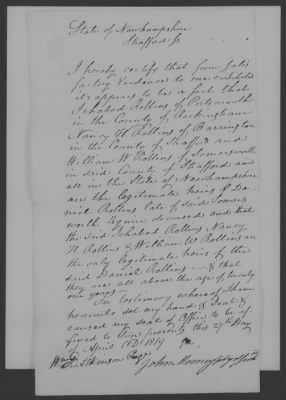 State of Newhampshire
Strafford Ss
I hereby certify that from satis
factory evidence to me exhibited
it appears to be a fact that
Ichabod Rollins of Portsmouth
in the County of Rockingham
Nancy H Rollins of Barrington
in the County of Strafford and
William W Rollins of Somersworth
in said County of Strafford and
all in the State of Newhampshire
are the legitimate heirs of Da
niel Rollins late of said Somers
worth Esquire deceased and that
the said Ichabod Rollins Nancy
H Rollins & William W Rollins are
the only legitimate heirs of the
said Daniel Rollins & that
they are all above the age of twenty
one years
In testimony whereof I have
hereunto set my hand & Seal &
caused my seal of Office to be af
fixed to these presents this 27th day
of April AD 1819
John Mooney